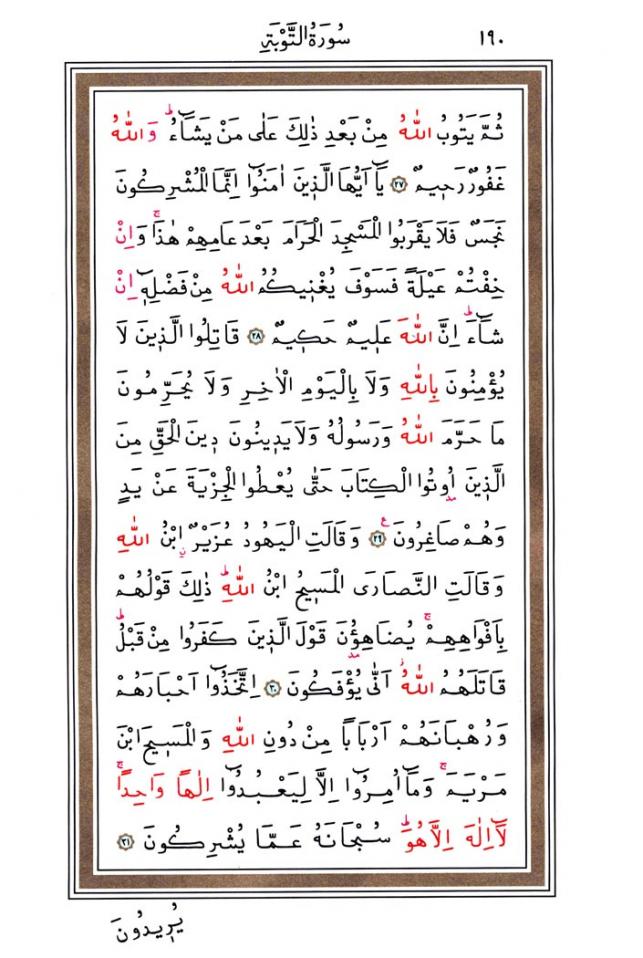 سُورَةُ التَّوْبَةِ ١٩٠
ثُمَّ يَتُوبُ اللّٰهُ مِنْ بَعْدِ ذٰلِكَ عَلٰى مَنْ يَشَٓاءُۜ وَاللّٰهُ
غَفُورٌ رَح۪يمٌ ﴿٢٧﴾ يَٓا اَيُّهَا الَّذ۪ينَ اٰمَنُٓوا اِنَّمَا الْمُشْرِكُونَ
نَجَسٌ فَلَا يَقْرَبُوا الْمَسْجِدَ الْحَرَامَ بَعْدَ عَامِهِمْ هٰذَاۚ وَاِنْ
خِفْتُمْ عَيْلَةً فَسَوْفَ يُغْن۪يكُمُ اللّٰهُ مِنْ فَضْلِه۪ٓ اِنْ
شَٓاءَۜ اِنَّ اللّٰهَ عَل۪يمٌ حَك۪يمٌ ﴿٢٨﴾ قَاتِلُوا الَّذ۪ينَ لَا
يُؤْمِنُونَ بِاللّٰهِ وَلَا بِالْيَوْمِ الْاٰخِرِ وَلَا يُحَرِّمُونَ
مَا حَرَّمَ اللّٰهُ وَرَسُولُهُ وَلَا يَد۪ينُونَ د۪ينَ الْحَقِّ مِنَ
الَّذ۪ينَ اُو۫تُوا الْكِتَابَ حَتّٰى يُعْطُوا الْجِزْيَةَ عَنْ يَدٍ
وَهُمْ صَاغِرُونَ۟ ﴿٢٩﴾ وَقَالَتِ الْيَهُودُ عُزَيْرٌ ابْنُ اللّٰهِ
وَقَالَتِ النَّصَارَى الْمَس۪يحُ ابْنُ اللّٰهِۜ ذٰلِكَ قَوْلُهُمْ
بِاَفْوَاهِهِمْۚ يُضَاهِؤُ۫نَ قَوْلَ الَّذ۪ينَ كَفَرُوا مِنْ قَبْلُۜ
قَاتَلَهُمُ اللّٰهُۘ اَنّٰى يُؤْفَكُونَ ﴿٣٠﴾ اِتَّخَذُٓوا اَحْبَارَهُمْ
وَرُهْبَانَهُمْ اَرْبَابًا مِنْ دُونِ اللّٰهِ وَالْمَس۪يحَ ابْنَ
مَرْيَمَۚ وَمَٓا اُمِرُٓوا اِلَّا لِيَعْبُدُٓوا اِلٰهًا وَاحِدًاۚ
لَٓا اِلٰهَ اِلَّا هُوَۜ سُبْحَانَهُ عَمَّا يُشْرِكُونَ ﴿٣١﴾
يُر۪يدُونَ